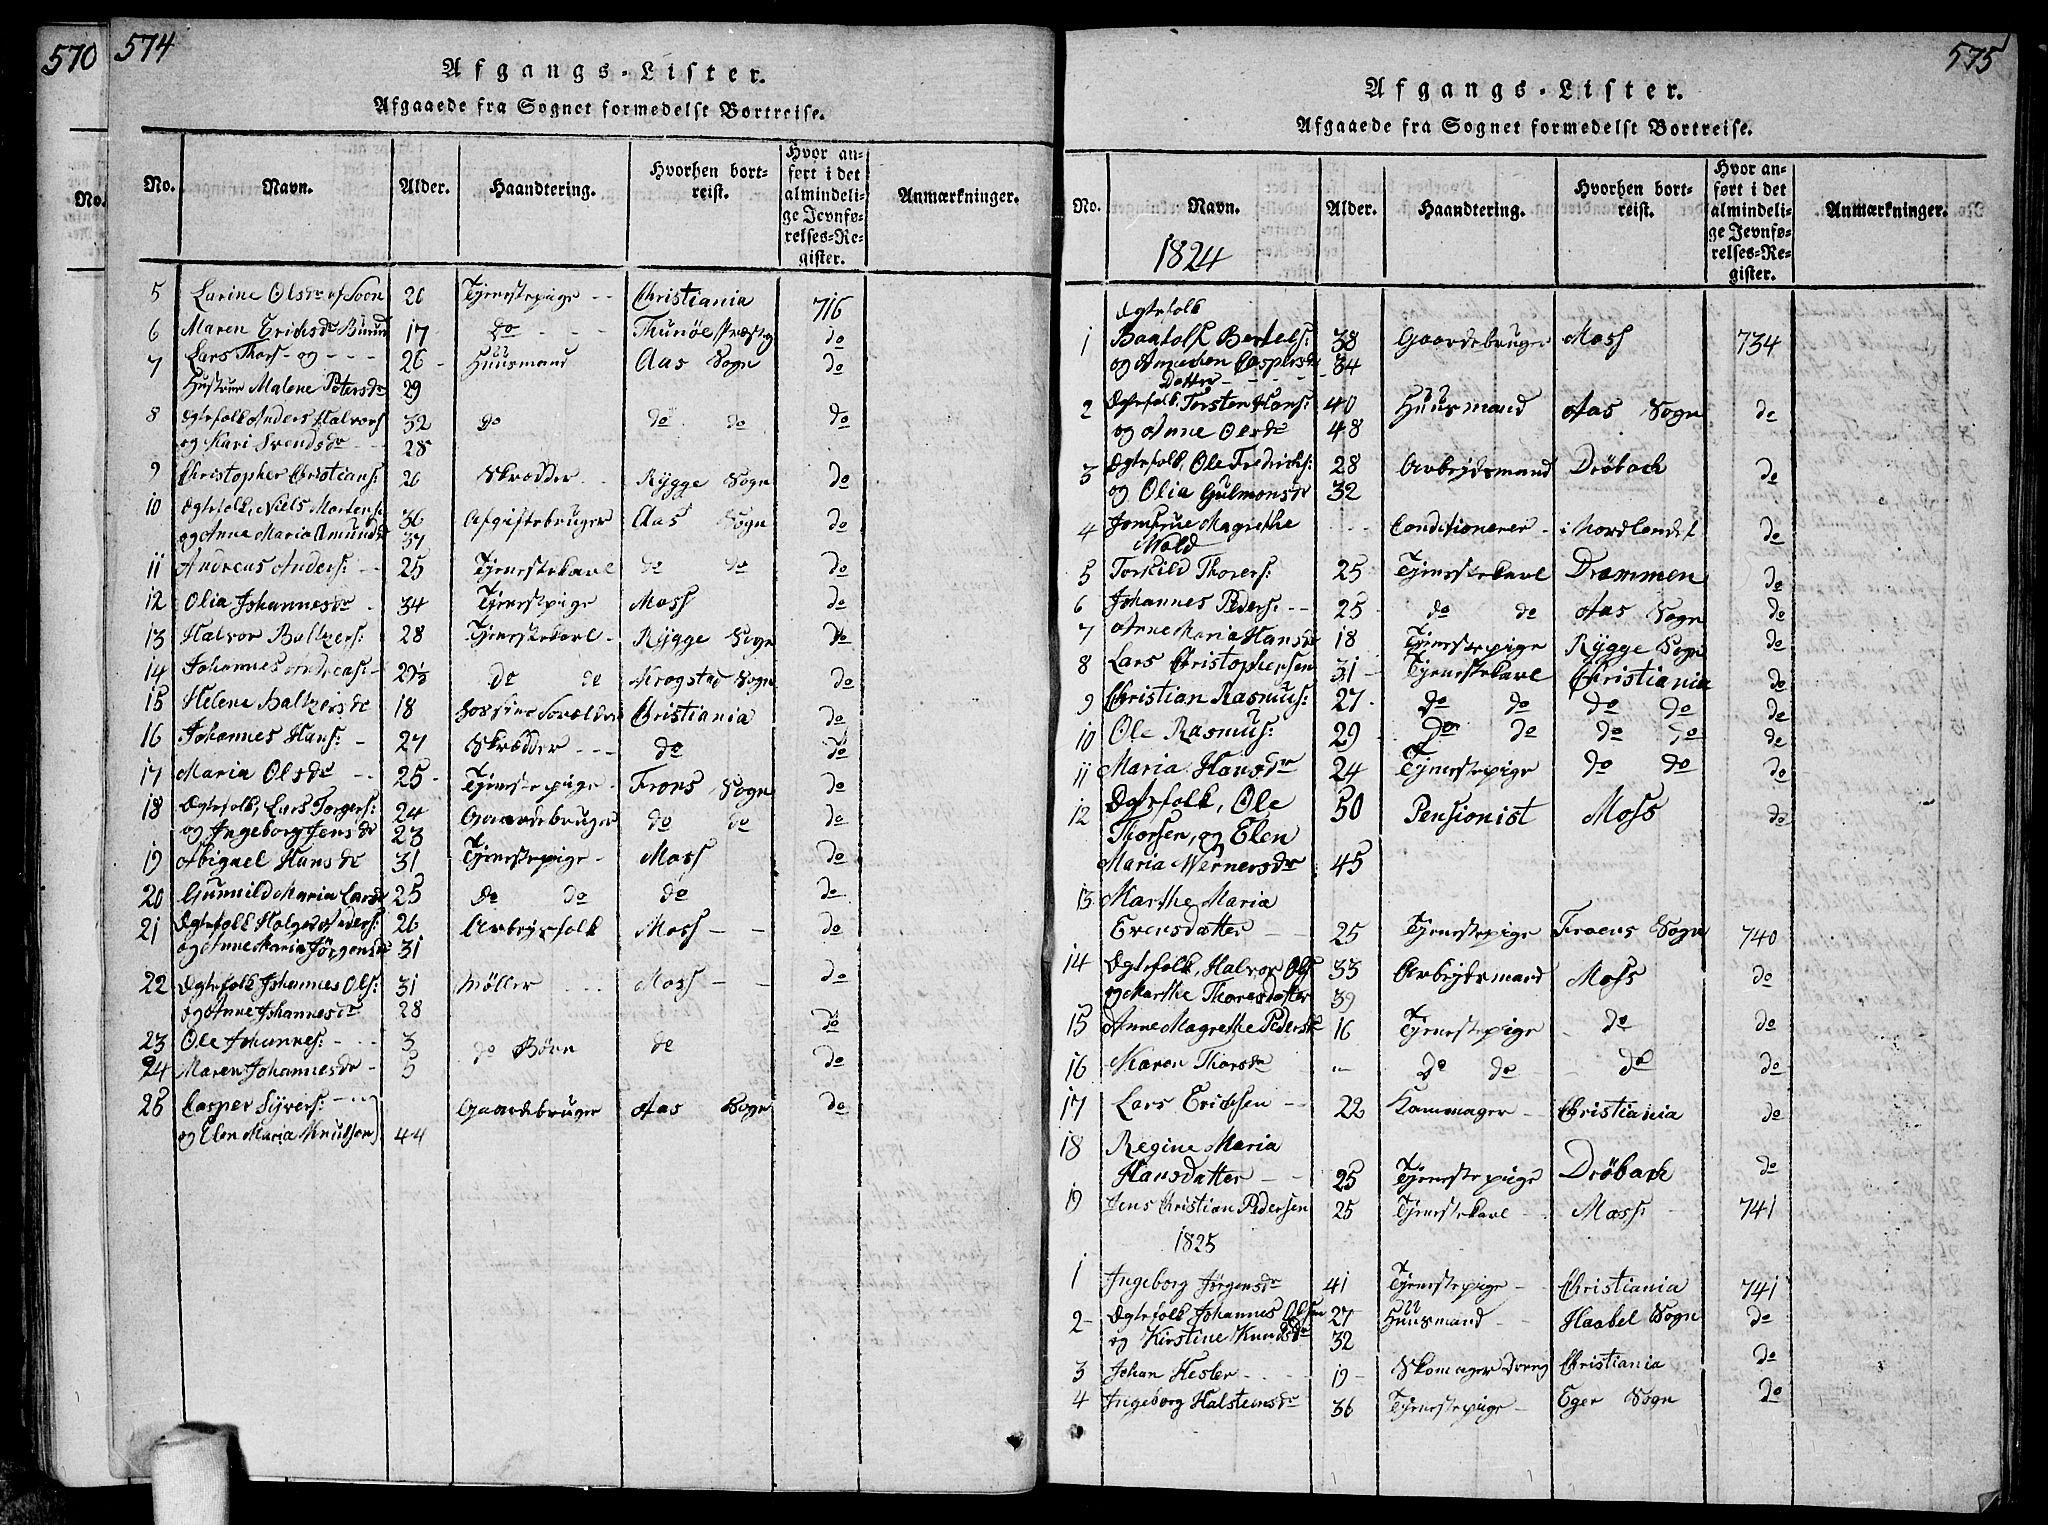 570
No.
574
Afgangs-Lister.
Afgaaede fra Sognet formedelst Bortreise.
No. Navn. Alder. Haandtering. Hvorhen bortreist. Hvor anført i det almindelige Jevnførelses-Register. Anmærkninger.
5 Larine Olsdr af Soon 20 Tjenestepige -- Christiania 716
6 Maren Erichsdr 17 do - - - do
7 Lars Thors- og - - - 26 - Huusmand Aas Sogn do
Hustrue Malene Petersdr 29
8 Ægtefolk Anders Halvors 32 do do do do
og Kari Svendsdr - - 28
9 Christopher Christians: 20 Skrædder - - Rygge Sogn do
10 Ægtefolk, Niels Mortens: 36 Afgiftsbruger Aas Sogn do
og Anne Maria Amundsdr 37
11 Andreas Anders: - - 25 Tjenestekarl do do do
12 Olia Johannesdr - 34 Tjenestepige Moss do
13 Halvor Baltzers: 28 Tjenestekarl - Rygge Sogn do
14 Johannes Andreas: - do do Krogstad Sogn do
15 Helene Baltzersdr 18 Christiania do
16 Johannes Hans: - 27 Skrædder - - - do do
17 Maria Olsdr - - 25 - Tjenestepige - Frons Sogn do
18 Ægtefolk, Lars Torgers: 24 Gaardebruger do do do
og Ingeborg Jensdr 23
19 Abiguel Hansdr 31 Tjenestepige - Moss do
20 Gunnild Maria Larsdr 25 do do do do
21 Ægtefolk Holger Anders: 26 Arbejdsfolk Moss - - do
og Anne Maria Jörgensdr 31
22 Ægtefolk Johannes Ols: 31 Möller - - - Moss - - do
og Anne Johannesdr 28 do
23 Ole Johannes: - - - 3 do Börn do
24 Maren Johannesdr - 5 do
25 Casper Syvers: - - - Gaardebruger Aas Sogn do
og Elen Maria Knudsen 44
575
Afgangs-Lister.
Afgaaede fra Sognet formedelst Bortreise.
No. Navn. Alder. Haandtering. Hvorhen bortreist. Hvor anført i det almindelige Jevnførelses-Register. Anmærkninger.
1824
Ægtefolk
1 Baatolf Bertels: 38 Gaardebruger Moss 734
og Anne Caspers 34
Datter - - - -
2 Ægtefolk, Torsten Hans: 40 Huusmand Aas Sogn do
og Anne Olsdr 48
3 Ægtefolk, Ole Fredrichs: 28 Arbejdsmand Dröbach do
og Olia Gulmonsdr 32
4 Jomfrue Magrethe - - - Conditionerer - i Nordlandet do
Wold
5 Torkild Thorers: 25 Tjenestekarl Drammen do
6 Johannes Peders: -- 25 - do do Aas Sogn do
7 Anne Maria Hansdr 18 Tjenestepige Rygge Sogn do
8 Lars Christophersen 31 - Tjenestekarl Christiania do
9 Christian Rasmus: 27 - do do do do do
10 Ole Rasmus: 29 - do do do do do
11 Maria Hansdr 24 Tjenestepige do do do
12 Ægtefolk, Ole 50 Pensionist Moss do
Thorsen, og Elen
Maria Wernersdr 45
13 Marthe Maria
Evensdatter - - 25 Tjenestepige Froens Sogn 740
14 Ægtefolk, Halvor Ols 33 Arbejdsmand Moss do
og Marthe Thoresdatter 39
15 Anne Magrethe Pedersdr 16 Tjenestepige - do do
16 Karen Thorsdr - - do do - do do
17 Lars Erichsen - - 22 Christiania do
18 Regine Maria
Hansdatter - - 25 Tjenestepige Dröbach do
19 Jens Christian Pedersen 25 Tjenestekarl - - Moss 741
1825
1 Ingeborg Jörgensdr 41 Tjenestepige - Christiania 741
2 - Ægtefolk Johannes Olsen 27 Huusmand - - Haabel Sogn do
og Kirstine Knudsdr 32
3 Johan Hesler - - - 19 - Skomager Dreng Christiania do
4 Ingeborg Halsteensdr 36 Tjenestepige - Eger Sogn do